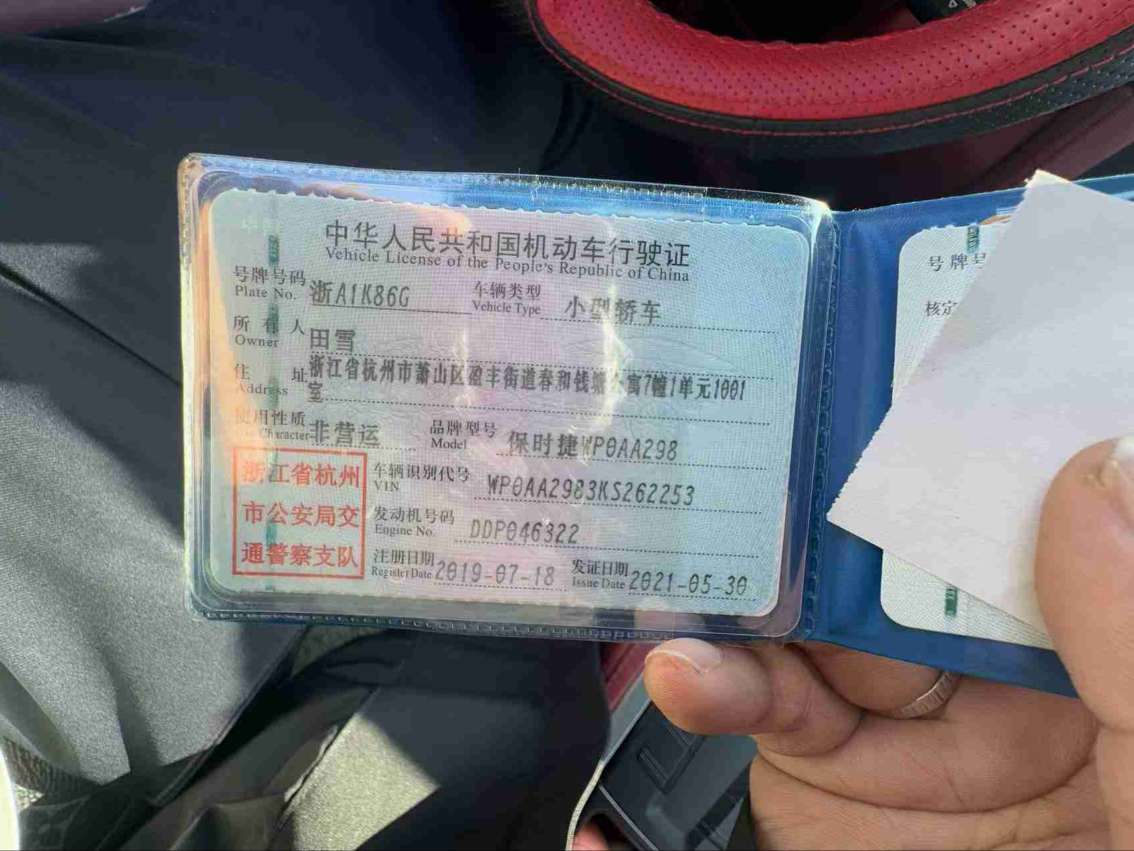 中华人民共和国机动车行驶证
Vehicle License of the People's Republic of China
号牌号码 浙A1K86G 车辆类型 小型轿车
Plate No. Vehicle Type
所有人 田雪
Owner
住址 浙江省杭州市萧山区盈丰街道春和钱塘公寓7幢1单元1001
Address 室
使用性质 非营运 品牌型号 保时捷WP0AA298
Character Model
车辆识别代号 WP0AA2983KS262253
VIN
发动机号码 DDP046322
Engine No.
注册日期 2019-07-18 发证日期 2021-05-30
Register Date Issue Date
浙江省杭州
市公安局交
通警察支队
号牌号
核定